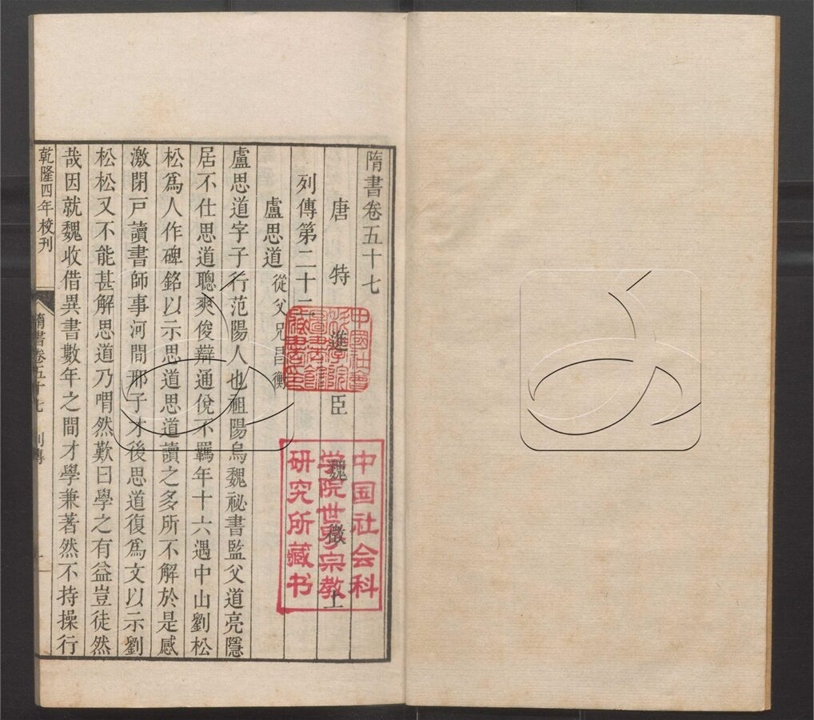 隋書卷五十七
唐特進臣魏徵上
列傳第二十二
盧思道 從父兄昌衡
盧思道字子行范陽人也祖陽烏魏祕書監父道亮隱
居不仕思道聰爽俊辯通侻不羈年十六遇中山劉松
松爲人作碑銘以示思道思道讀之多所不解於是感
激閉戸讀書師事河間邢子才後思道復爲文以示劉
松松又不能甚解思道乃喟然歎曰學之有益豈徒然
哉因就魏收借異書數年之間才學兼著然不持操行
乾隆四年校刊
隋書卷五十七 列傳 一
中國社會科學院圖書館藏書印
中国社会科
学院世界宗教
研究所藏书